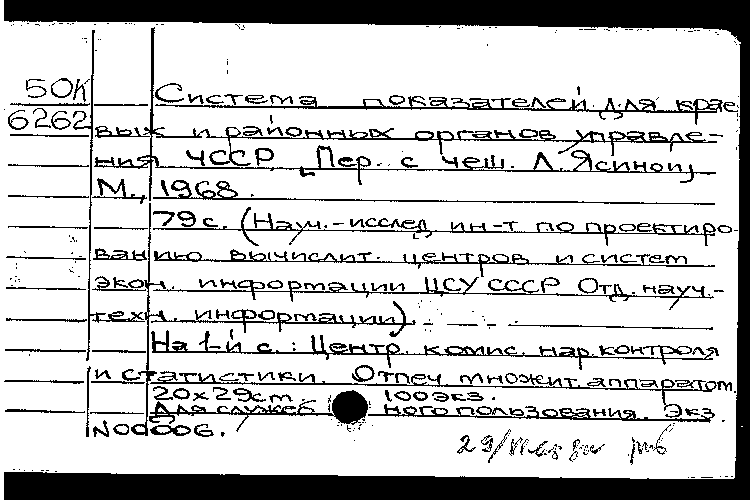 50К Система показателей для крае
6262 вых и районных органов управле-
ния ЧССР [Пер. с чеш. Л. Ясиноп]
М., 1968.
79 с. (Науч.-исслед. ин-т по проектиро
ванию вычислит. центров и систем
экон. информации ЦСУ СССР Отд. науч.-
техн. информации).
На 1-й с.: Центр. комис. нар. контроля
и статистики. Отпеч. множит. аппаратом.
20х29cm. 100экз.
Для служебного пользования. Экз.
N00006.
29/